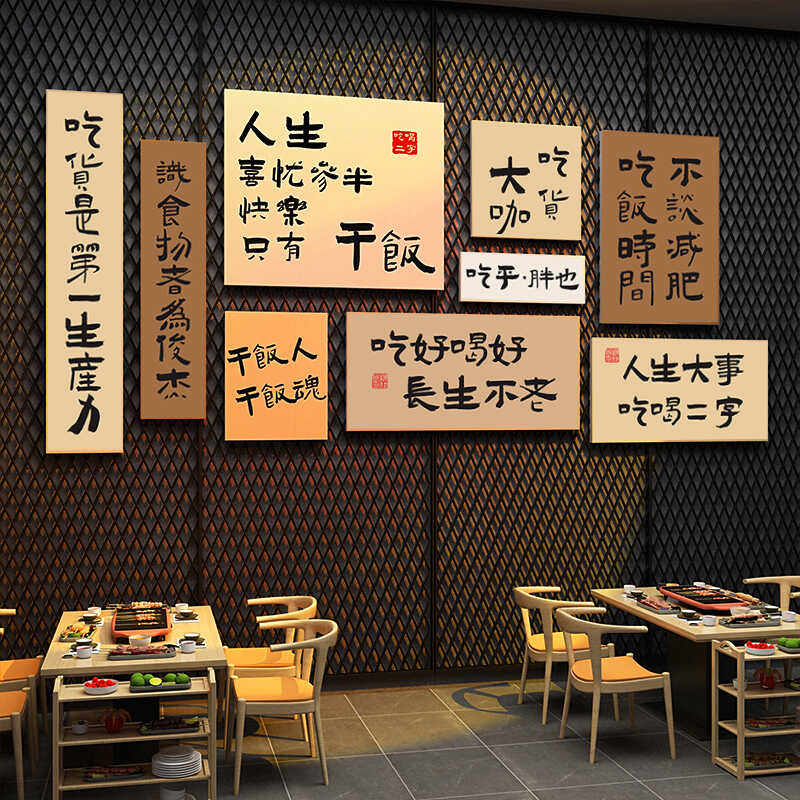 吃貨是第一生産力
識食物者為俊杰
人生
喜忧參半
快樂
只有 干飯
吃喝
二字
吃貨
大咖
不談減肥
吃飯時間
吃乎·胖也
干飯人
干飯魂
吃好喝好
長生不老
人生大事
吃喝二字